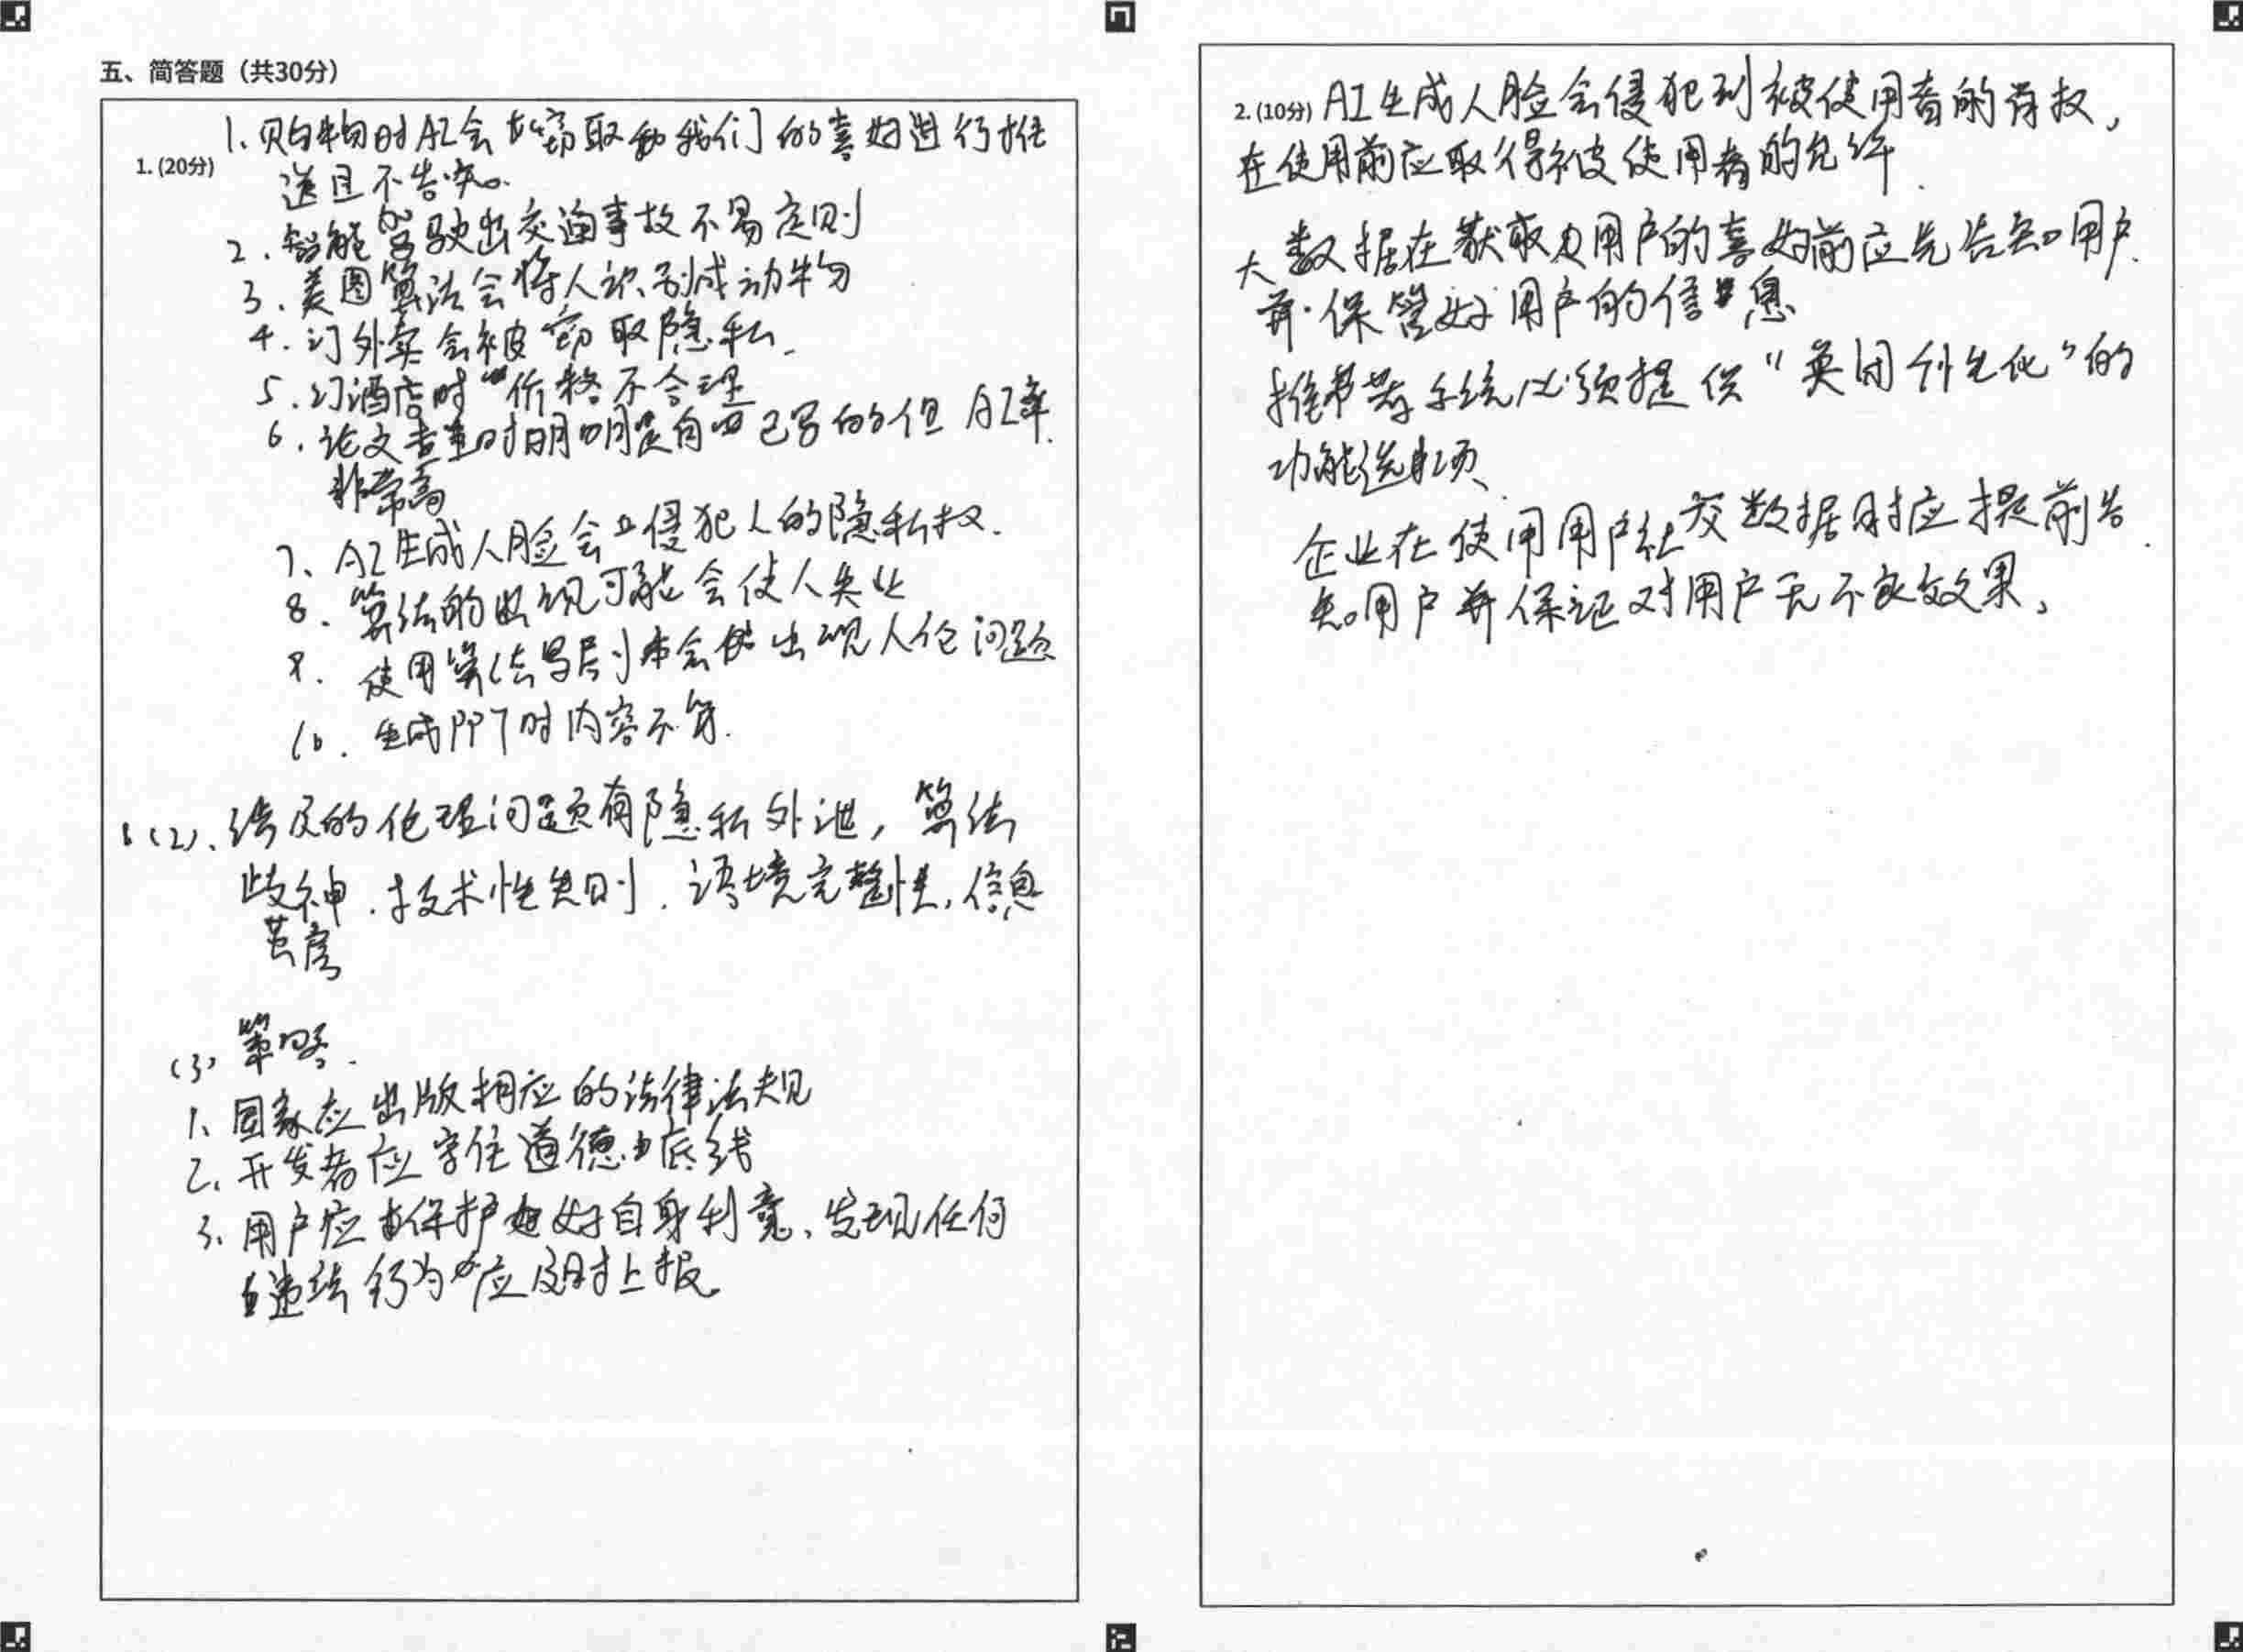 五、简答题（共30分）
1.(20分)
1.购物时AI会窃取我们的喜好进行推
送且不告知。
2.智能驾驶出交通事故不易定则
3.美图算法会将人识别成动物
4.订外卖会被窃取隐私.
5.订酒店时价格不合理
6.论文查重时明明是自己写的但AI率
非常高
7、AI生成人脸会侵犯人的隐私权.
8.算法的出现可能会使人失业
9.使用算法写剧本会出现人伦问题
10.生成PPT时内容不符.
(2)、涉及的伦理问题有隐私外泄,算法
歧神.技术性失则.语境完整性,信息
茧房
(3)策略.
1、国家应出版相应的法律法规
2、开发者应守住道德底线
3、用户应保护好自身利意、发现任何
违法行为应及时上报.
2.(10分) AI生成人脸会侵犯到被使用者的权,
在使用前应取得被使用者的允许.
大数据在获取用户的喜好前应先告知用户.
并保管好用户的信息
推荐系统必须提供“化”的
功能选项.
企业在使用用户社交数据时应提前告
知用户并保证对用户无不良效果.